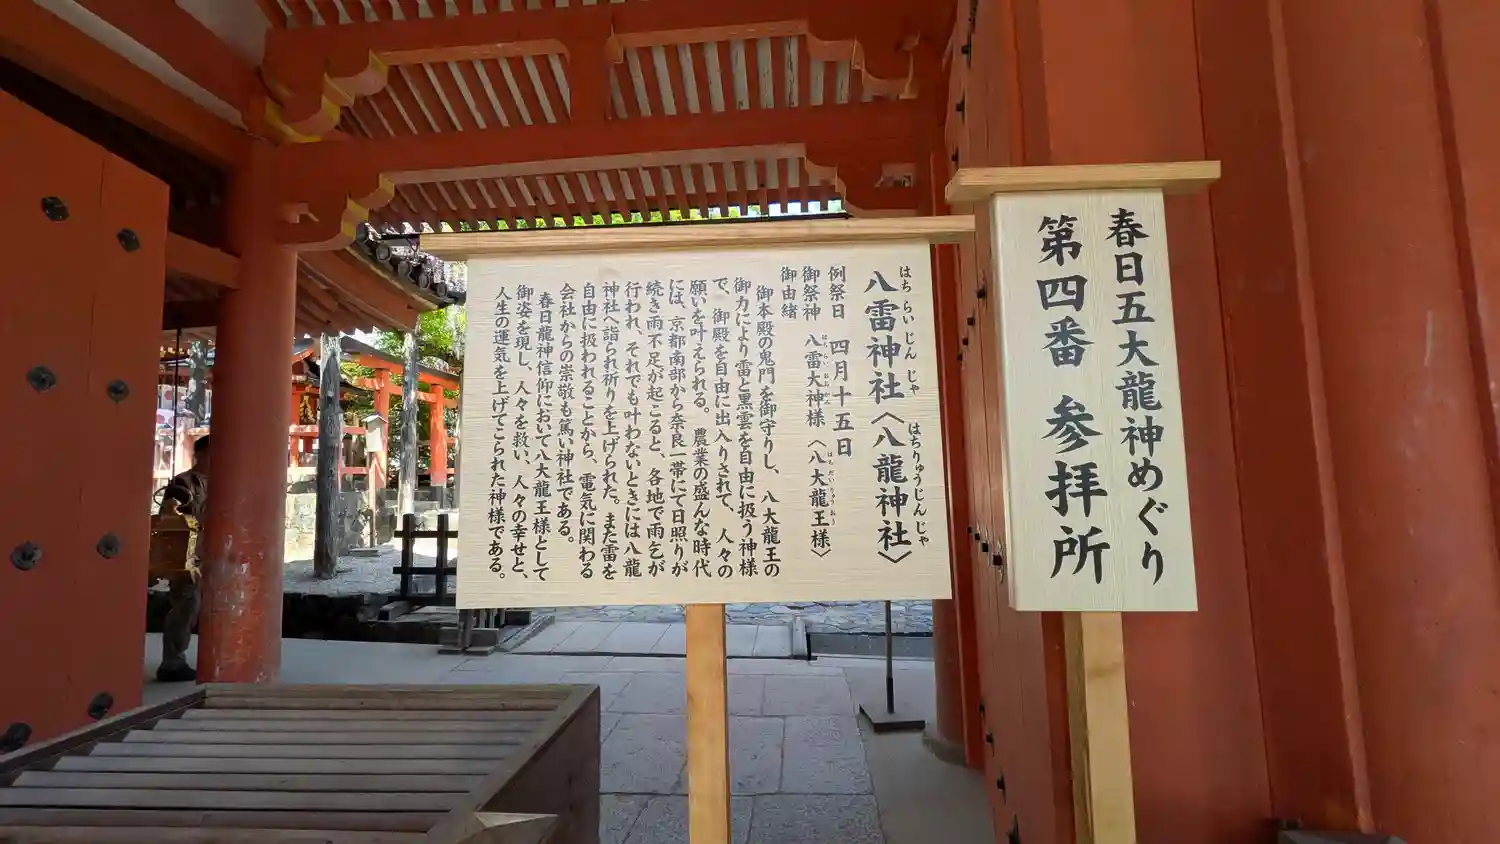 春日五大龍神めぐり
第四番 参拝所
はち らい じん じゃ はちりゅうじんじゃ
八雷神社〈八龍神社〉
例祭日 四月十五日
はちらいおおかみ はちだいりゅうおう
御祭神 八雷大神様〈八大龍王様〉
御由緒
御本殿の鬼門を御守りし、八大龍王の
御力により雷と黒雲を自由に扱う神様
で、御殿を自由に出入りされて、人々の
願いを叶えられる。農業の盛んな時代
には、京都南部から奈良一帯にて日照りが
続き雨不足が起こると、各地で雨乞が
行われ、それでも叶わないときには八龍
神社へ詣られ祈りを上げられた。また雷を
自由に扱われることから、電気に関わる
会社からの崇敬も篤い神社である。
春日龍神信仰において八大龍王様として
御姿を現し、人々を救い、人々の幸せと、
人生の運気を上げてこられた神様である。